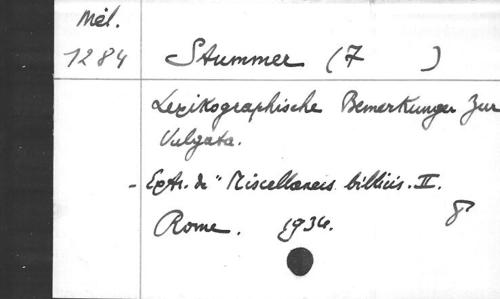 Mél.
1284 Stummer (F )
Lexikographische Bemerkungen zur
Vulgata.
- Extr. de "Miscellaneis biblicis. II.
Rome. 1934. 8°